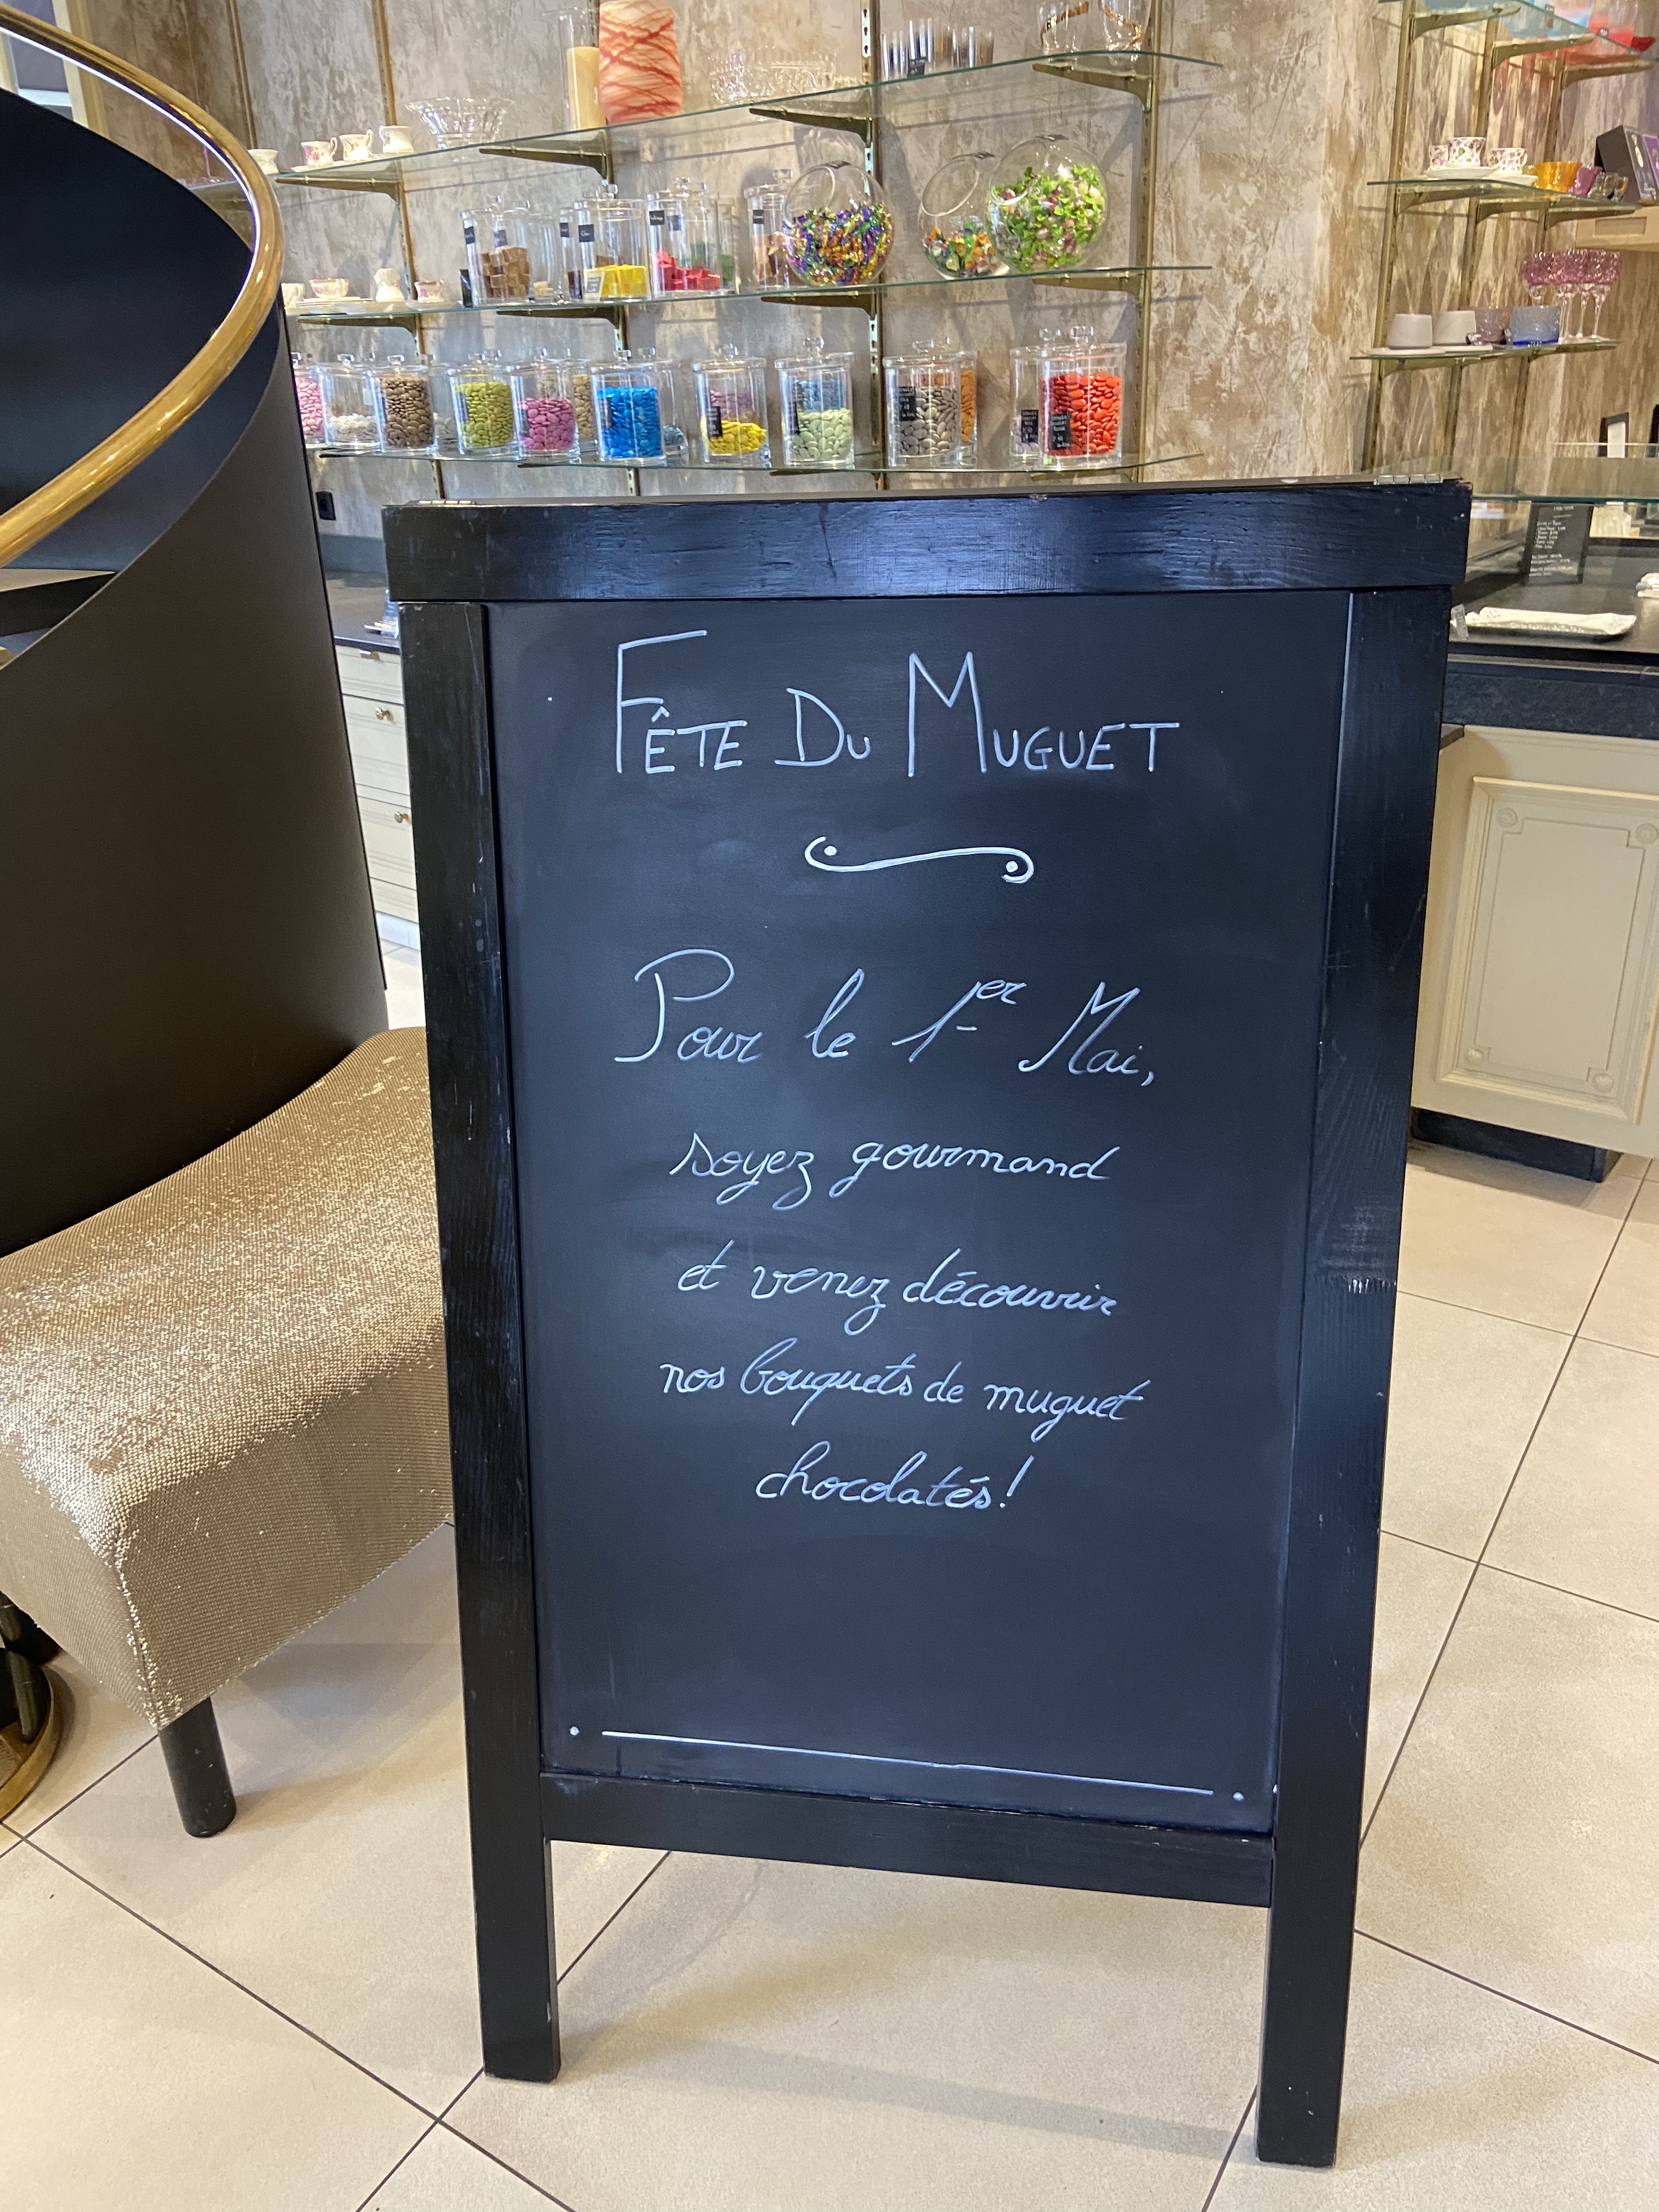 FÊTE DU MUGUET
Pour le 1er Mai,
soyez gourmand
et venez découvrir
nos bouquets de muguet
chocolatés!